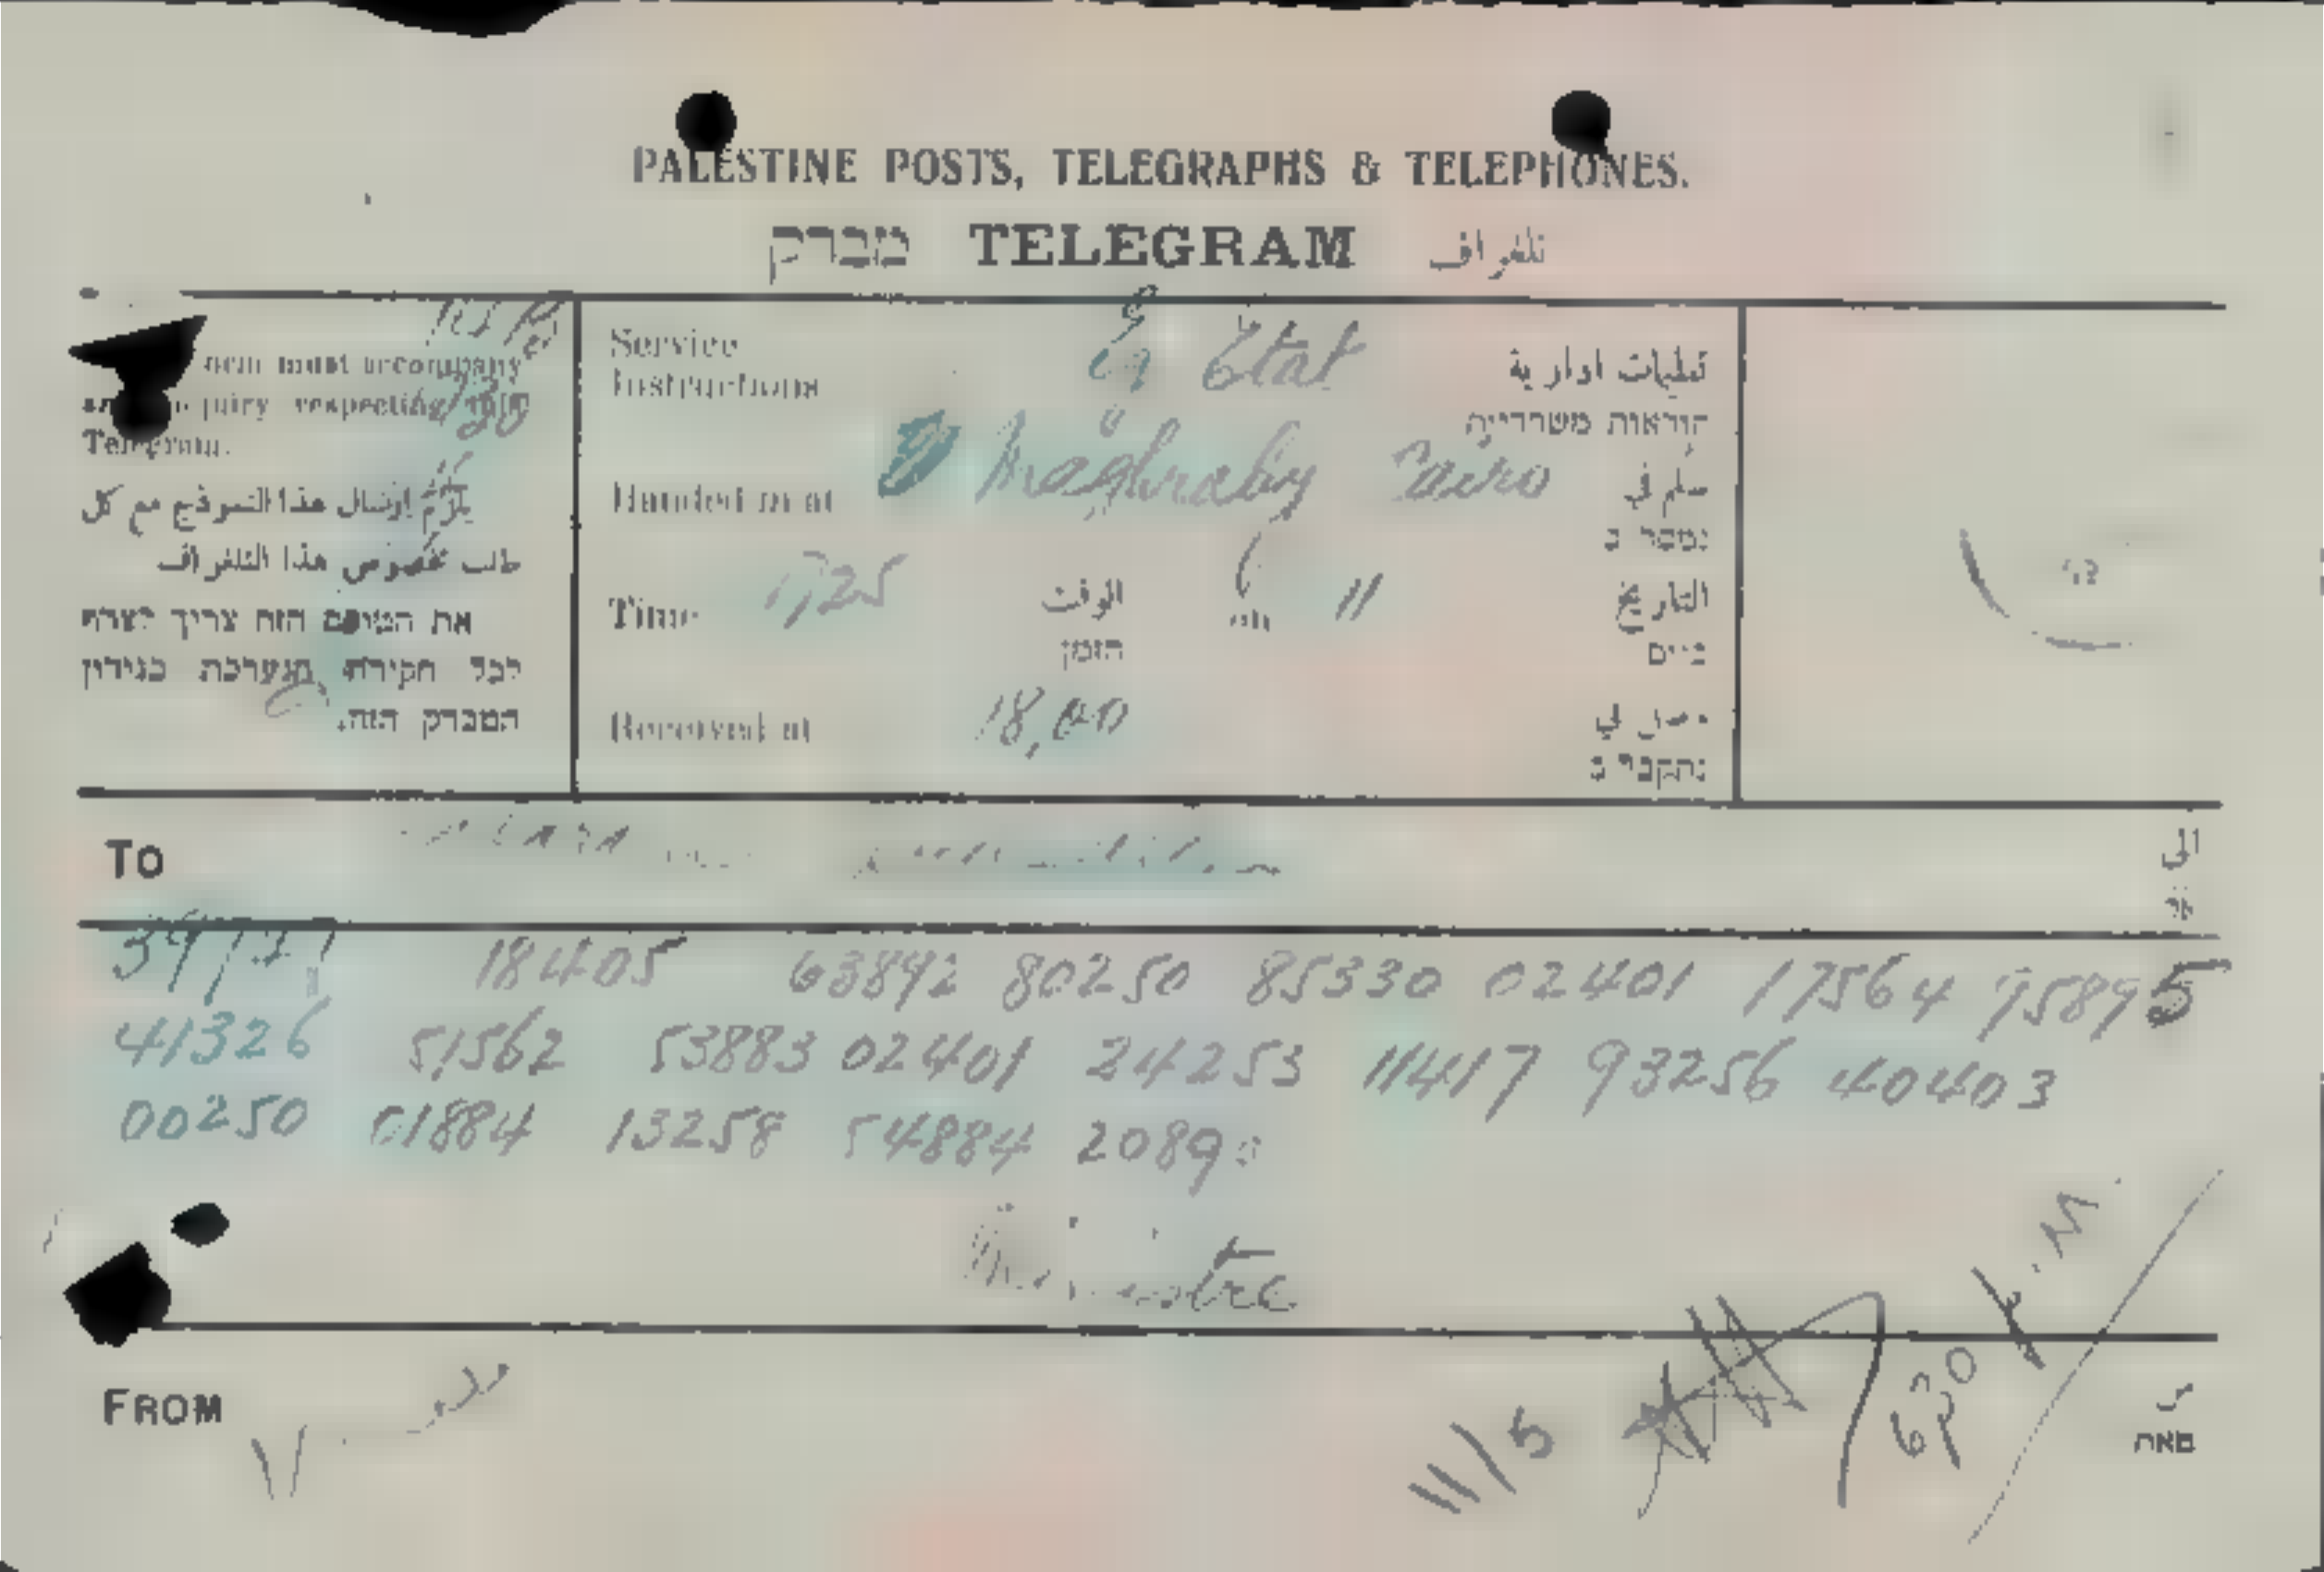 PALESTINE POSTS, TELEGRAPHS & TELEPHONES.
מברק TELEGRAM تلغراف
must accompany
respecting this
Telegram.
يلزم ارسال هذا النموذج مع كل
طلب بخصوص هذا التلغراف
את הטופס הזה צריך לצרף
לכל חקירה הנערכת בנידון
המברק הזה.
Service
Instructions
Etat
تعليمات ادارية
הוראות משרדיות
Handed in at
Maghraby Cairo
سلم في
נמסר ב
Time 1725 الوقت הזמן
on 11 التاريخ ביום
Received at 18,00
وصل في
נתקבל ב
To
الى
אל
18405 63892 80250 85330 02401 17564 95895
41326 51562 53883 02401 24253 11417 93256 40403
00250 01884 13258 54884
Ministre
FROM
11/5
630 P.M.
من
מאת